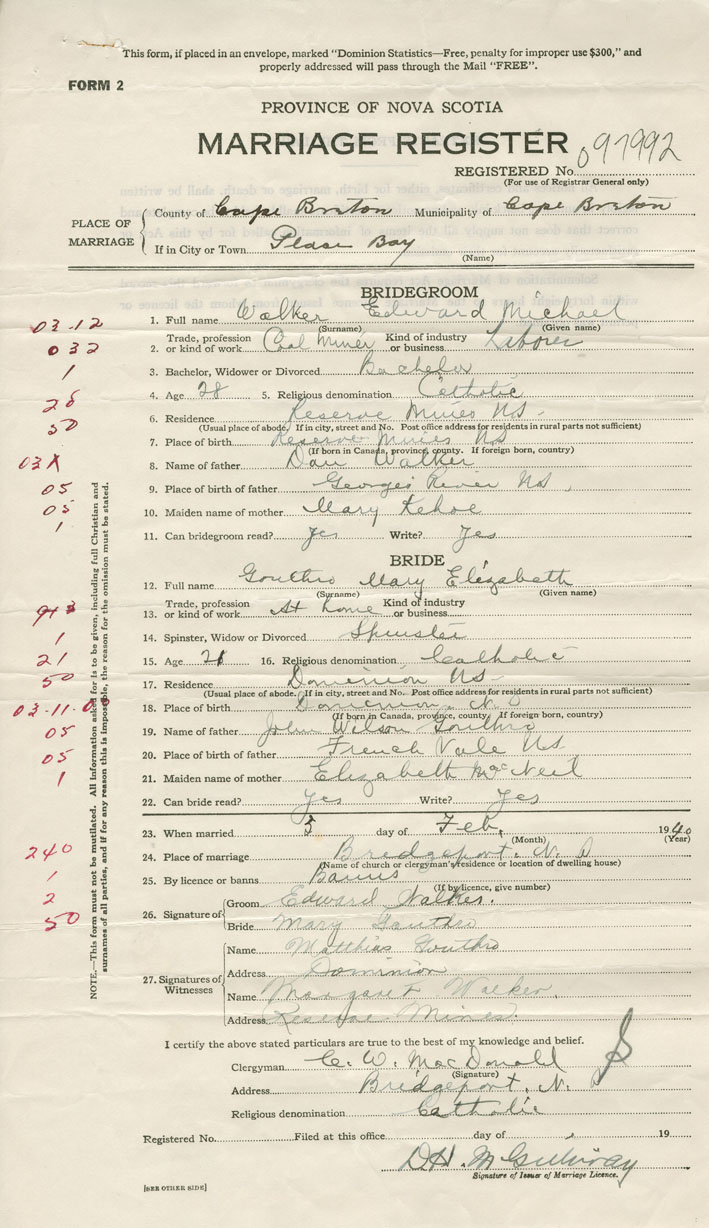 This form, if placed in an envelope, marked "Dominion Statistics—Free, penalty for improper use $300," and
properly addressed will pass through the Mail "FREE".
FORM 2
PROVINCE OF NOVA SCOTIA
MARRIAGE REGISTER
REGISTERED No. 097992
(For use of Registrar General only)
PLACE OF MARRIAGE
County of Cape Breton Municipality of Cape Breton
If in City or Town Bay
(Name)
BRIDEGROOM
03-12
1. Full name Walker Edward Michael
(Surname) (Given name)
032
2. Trade, profession or kind of work Coal Miner Kind of industry or business Laborer
1
3. Bachelor, Widower or Divorced Bachelor
28
4. Age 28 5. Religious denomination Catholic
50
6. Residence Reserve Mines NS
(Usual place of abode. If in city, street and No. Post office address for residents in rural parts not sufficient)
7. Place of birth Reserve Mines NS
(If born in Canada, province, county. If foreign born, country)
03X
8. Name of father Dan Walker
05
9. Place of birth of father Georges River NS
05
10. Maiden name of mother Mary Kehoe
1
11. Can bridegroom read? Yes Write? Yes
BRIDE
12. Full name Gouthro Mary Elizabeth
(Surname) (Given name)
13. Trade, profession or kind of work At home Kind of industry or business
1
14. Spinster, Widow or Divorced Spinster
21
15. Age 21 16. Religious denomination Catholic
50
17. Residence Dominion NS
(Usual place of abode. If in city, street and No. Post office address for residents in rural parts not sufficient)
03-11-0
18. Place of birth Dominion, N.S
(If born in Canada, province, county. If foreign born, country)
05
19. Name of father John Wilson Gouthro
05
20. Place of birth of father French Vale NS
1
21. Maiden name of mother Elizabeth MacNeil
22. Can bride read? Yes Write? Yes
23. When married 3 day of Feb, 1940
(Month) (Year)
240
24. Place of marriage Bridgeport, N. S
(Name of church or clergyman's residence or location of dwelling house)
1
25. By licence or banns Banns
(If by licence, give number)
2
50
26. Signature of
Groom Edward Walker.
Bride Mary Gouthro
27. Signatures of Witnesses
Name Matthias Gouthro
Address Dominion
Name Margaret Walker
Address Reserve Mines
I certify the above stated particulars are true to the best of my knowledge and belief.
Clergyman C. W. MacDonald
(Signature)
Address Bridgeport, N. S
Religious denomination Catholic
Registered No. Filed at this office day of 19
D.H. McGillivray
Signature of Issuer of Marriage Licence.
[SEE OTHER SIDE]
NOTE.—This form must not be mutilated. All information asked for is to be given, including full Christian and
surnames of all parties, and if for any reason this is impossible, the reason for the omission must be stated.